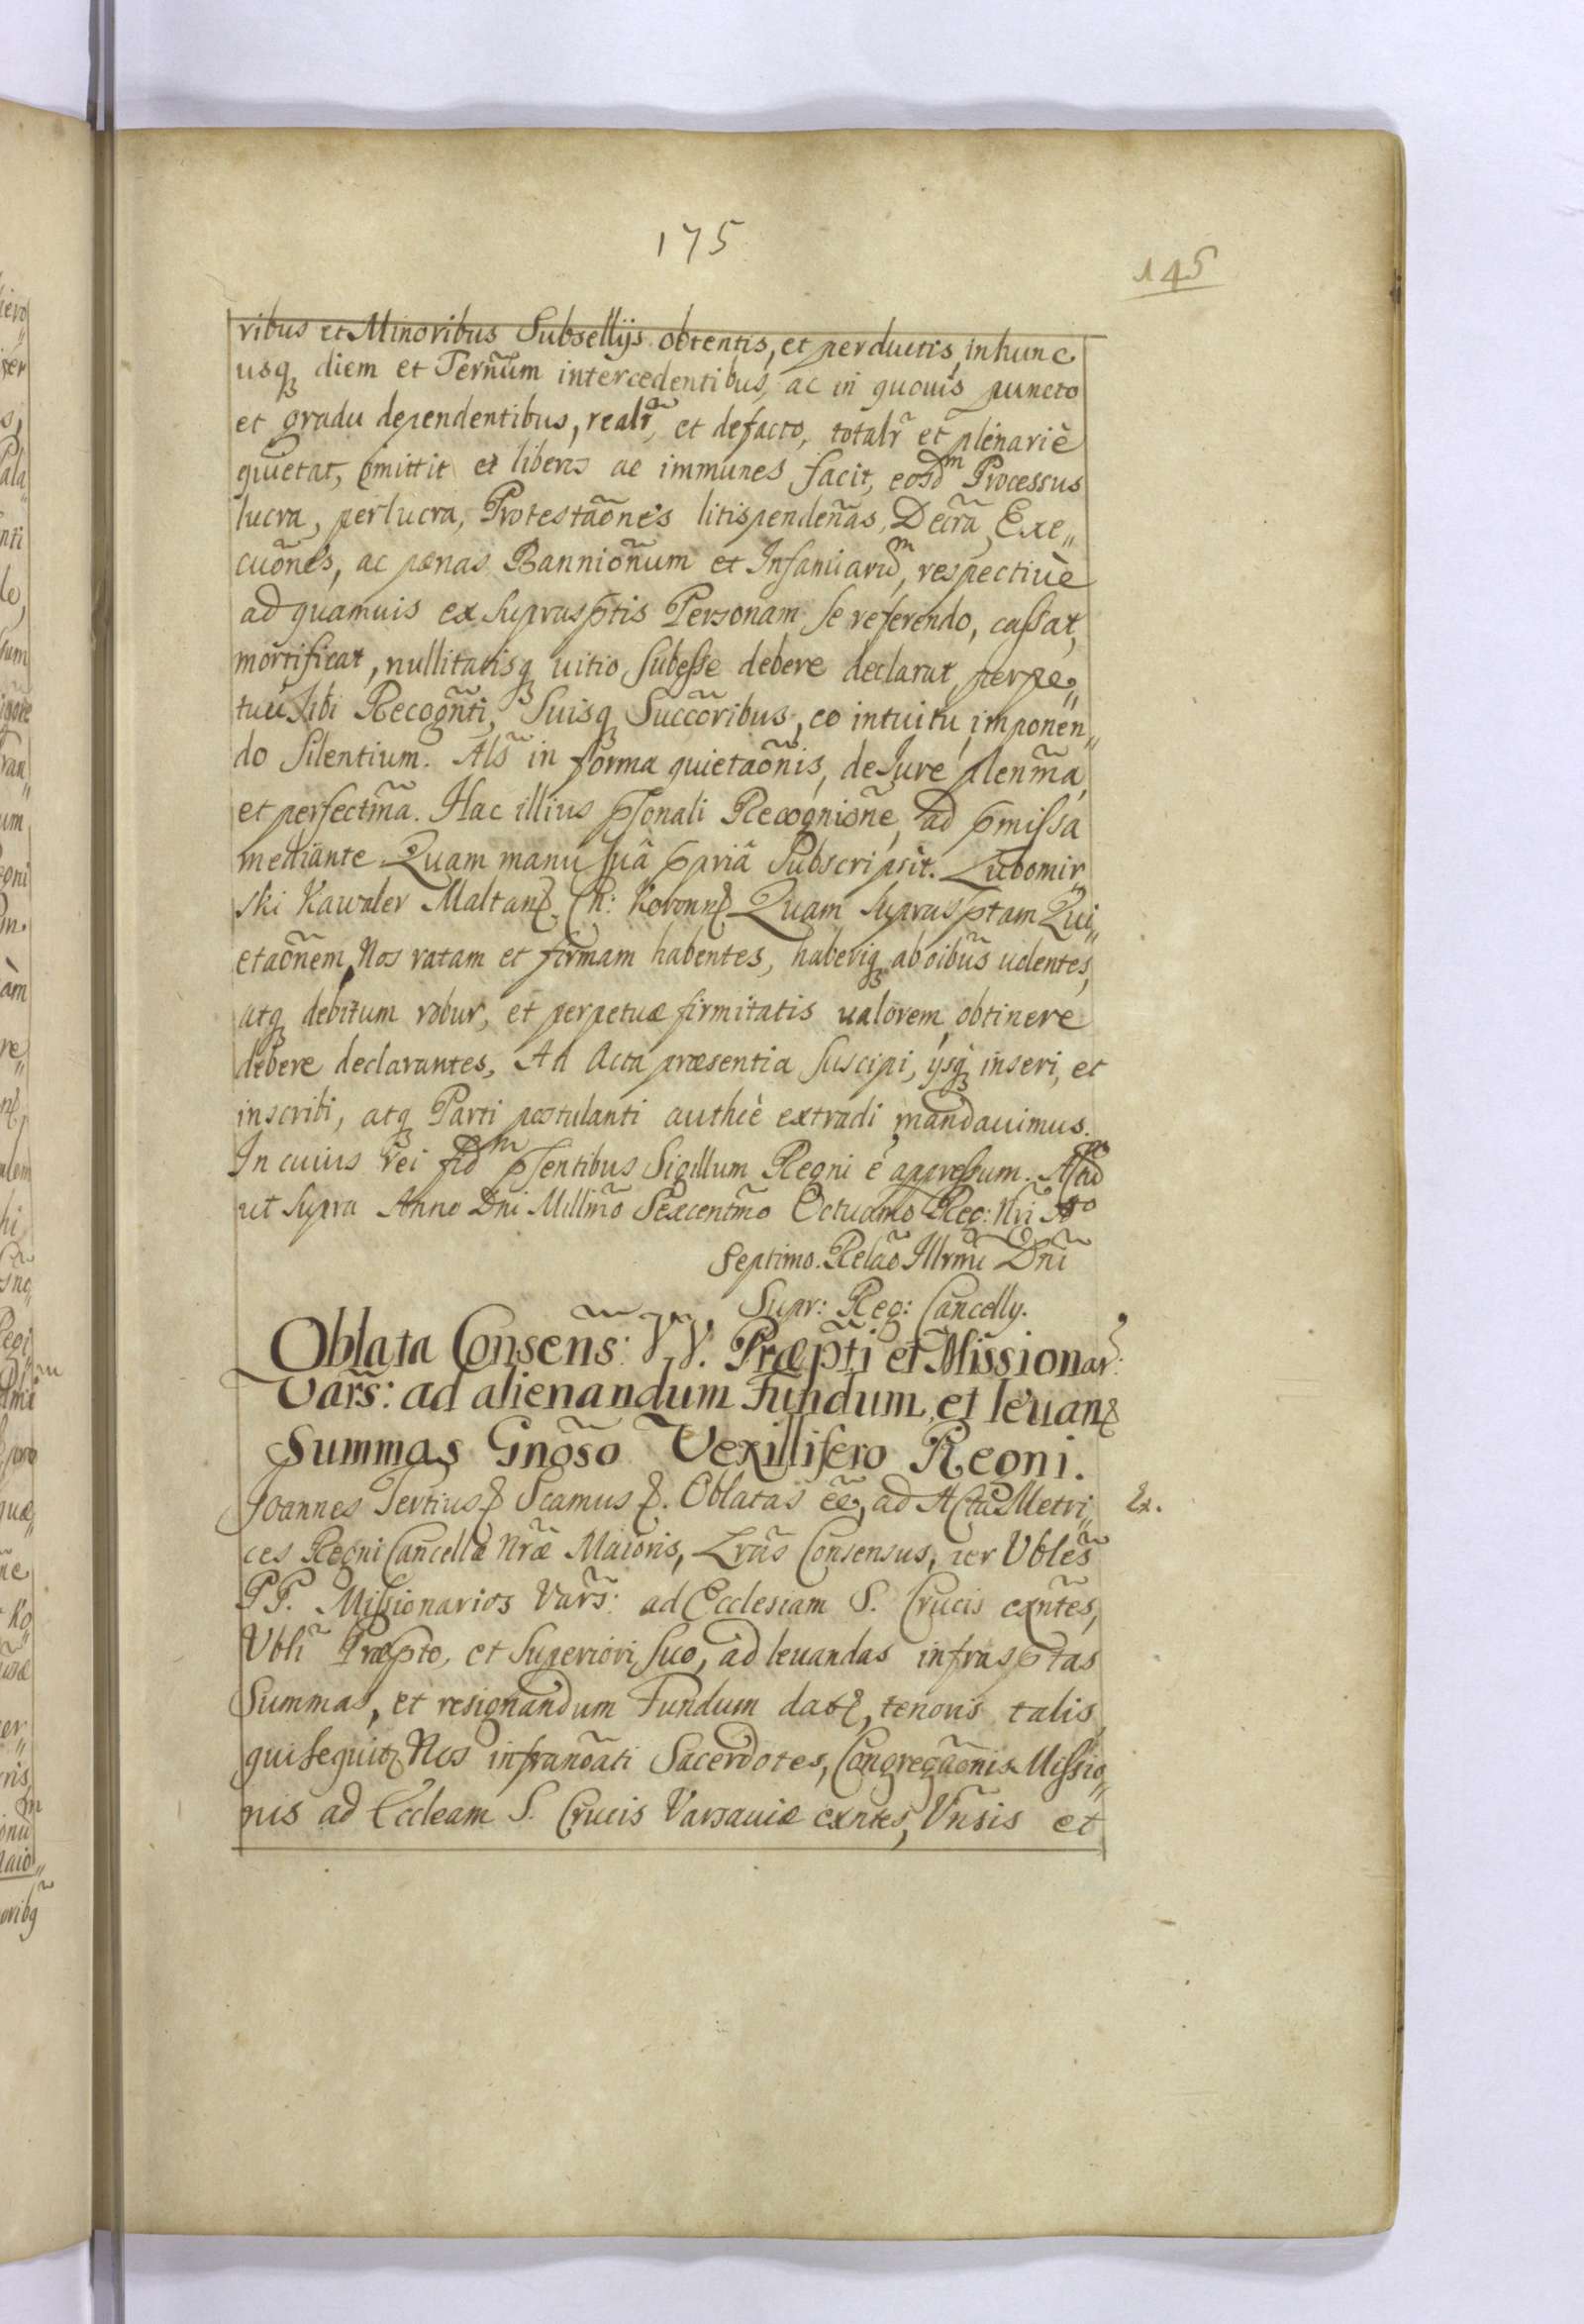 175
145
ribus et Minoribus Subsellijs obtentis, et perductis, in hunc
usq diem et Termũm intercedentibus, ac in quouis puncto
et gradu dependentibus, realr̃, et defacto, totalr̃ et plenariè
quietat, omittit et liberos ac immunes facit, eosdm Processus
lucra, perlucra, Protestaões litispendeñas, Decr̃a, Exe„
cuões, ac pœnas Bannioñum et Infamiarum, respectiuè
ad quamuis ex suprasptis Personam se referendo, cassat,
mortificat, nullitatisq uitio subesse debere declarat, perpe„
tuũ sibi Recogñti, Suisq Succõribus, eo intuitu, imponen„
do silentium. Als̃ in forma quietaõnis, de Jure plenm̃a,
et perfectm̃a. Hac illius psonali Recognioñe, ad pmissa
mediante. Quam manu suâ ppriâ Subscripsit. Lubomir„
ski Kawaler Maltan. Ch: Koronn Quam suprasptam Qui„
etaõnem Nos ratam et firmam habentes, haberiq ab oibũs uolentes,
atq debitum robur, et perpetuæ firmitatis ualorem obtinere
debere declarantes, Ad Acta præsentia suscipi, ijsq inseri, et
inscribi, atq Parti postulanti authcè extradi mandauimus.
In cuius rei fidm psentibus Sigillum Regni è appressum. Actũ
ut supra Anno Dni Millm̃o Sexcentm̃o Octuamo Reg: Nri Aº
Septimo. Relaõ Illrmi Dni
Supr: Reg: Cancellrij.
Oblata Consens̃: VV. Præpti et Missionar:
Vars̃: ad alienandum Fundum, et leuan
Summas Gnõso Vexillifero Regni.
Joannes Tertius Scamus. Oblatas eẽ, ad Acta Metri„ Ex.
ces Regni Cancellæ Nræ Maioris, Lras̃ Consensus, per Vbles̃
PP. Missionarios Vars̃: ad Ecclesiam S. Crucis exñtes,
Vbli Præpto, et Superiori suo, ad leuandas infrasptas
Summas, et resignandum Fundum dat, tenoris talis,
qui sequitr Nos infranoãti Sacerdotes, Congregaõnis Missio„
nis ad Eccleam S. Crucis Varsauiæ exntes, Vñsis et